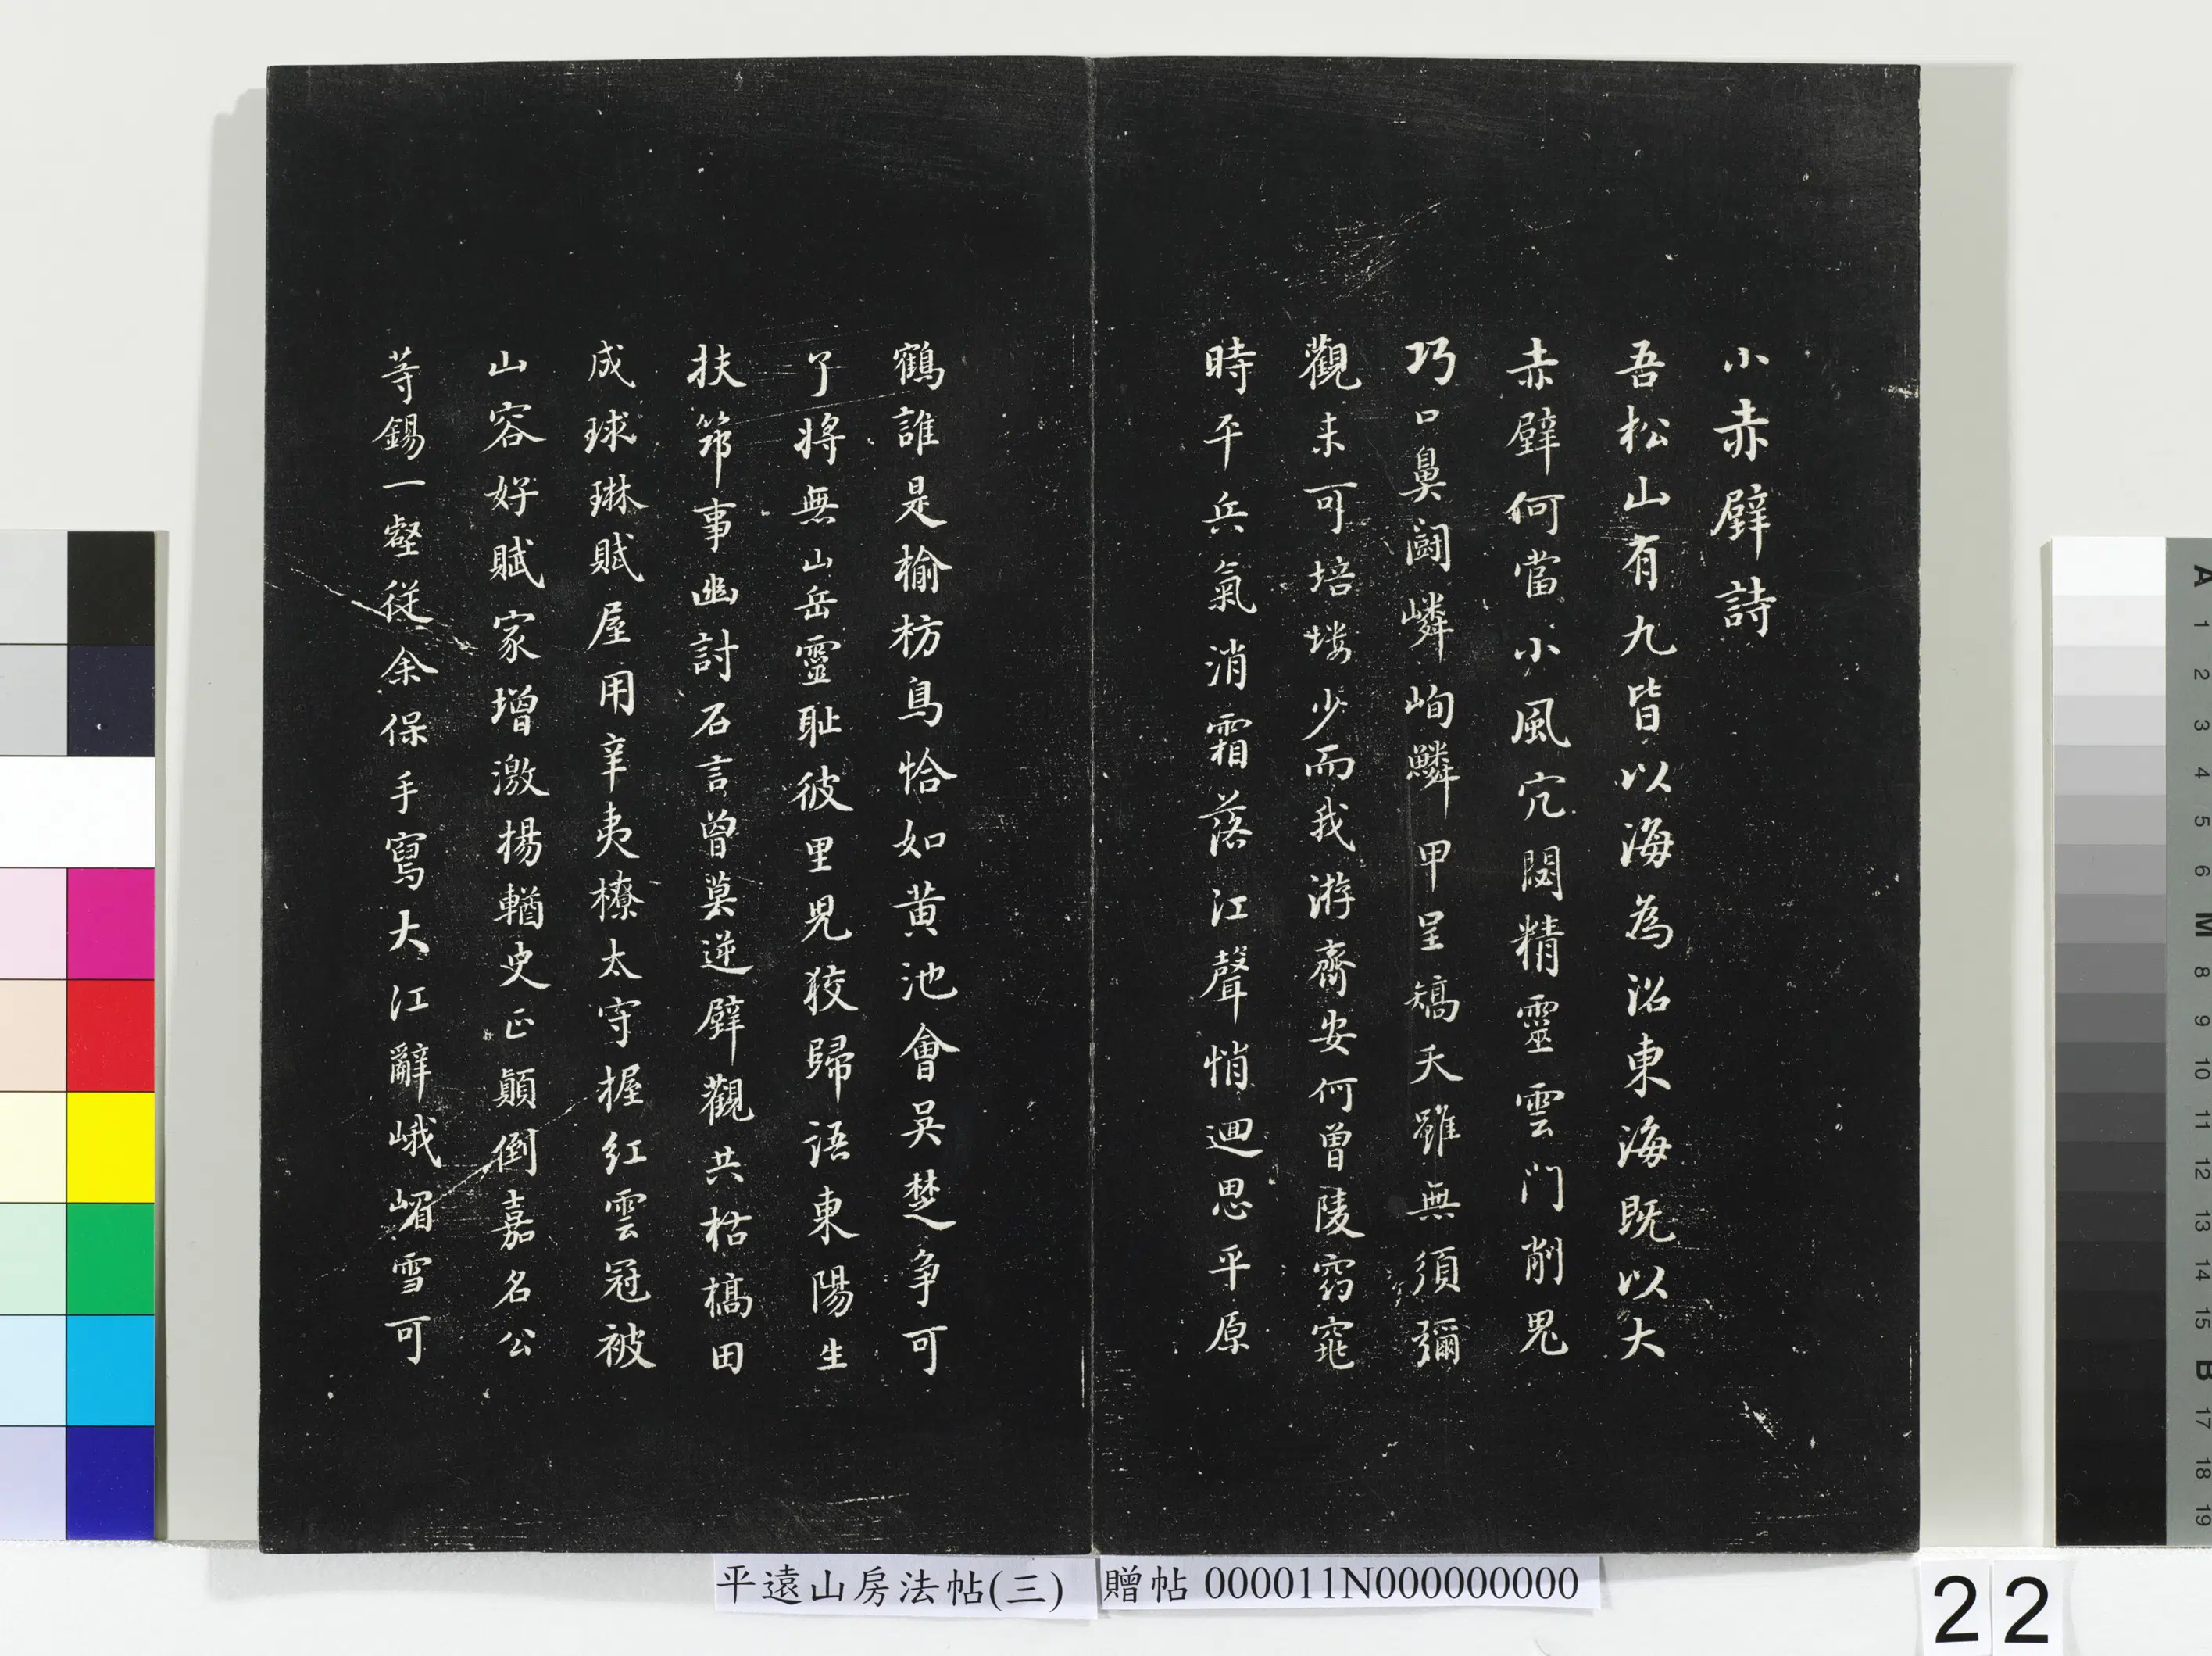 小赤壁詩
吾松山有九皆以海為沼東海既以大
赤壁何當小風穴閟精靈雲門削鬼
巧口鼻闘嶙峋鱗甲呈矯夭雖無須彌
觀未可培塿少而我游齊安何曾陵窈窕
時平兵氣消霜落江聲悄迴思平原
鶴誰是榆枋鳥恰如黃池會吳楚爭可
了將無山岳靈恥彼里兒狡歸語東陽生
扶筇事幽討石言曾莫逆壁觀共枯槁田
成球琳賦屋用辛夷橑太守握紅雲冠被
山容好賦家增激揚輶史正顛倒嘉名公
等錫一壑從余保手寫大江辭峨嵋雪可
平遠山房法帖(三)
贈帖 000011N000000000
22
A 1 2 3 4 5 6 M 8 9 10 11 12 13 14 15 B 17 18 19